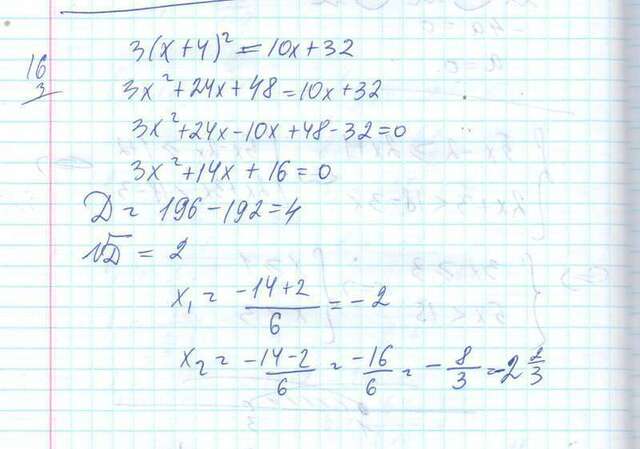 3(x+4)² = 10x+32
16
3
3x²+24x+48=10x+32
3x²+24x-10x+48-32=0
3x²+14x+16=0
D = 196-192=4
√D = 2
x₁ = (-14+2)/6 = -2
x₂ = (-14-2)/6 = -16/6 = -8/3 = -2 2/3